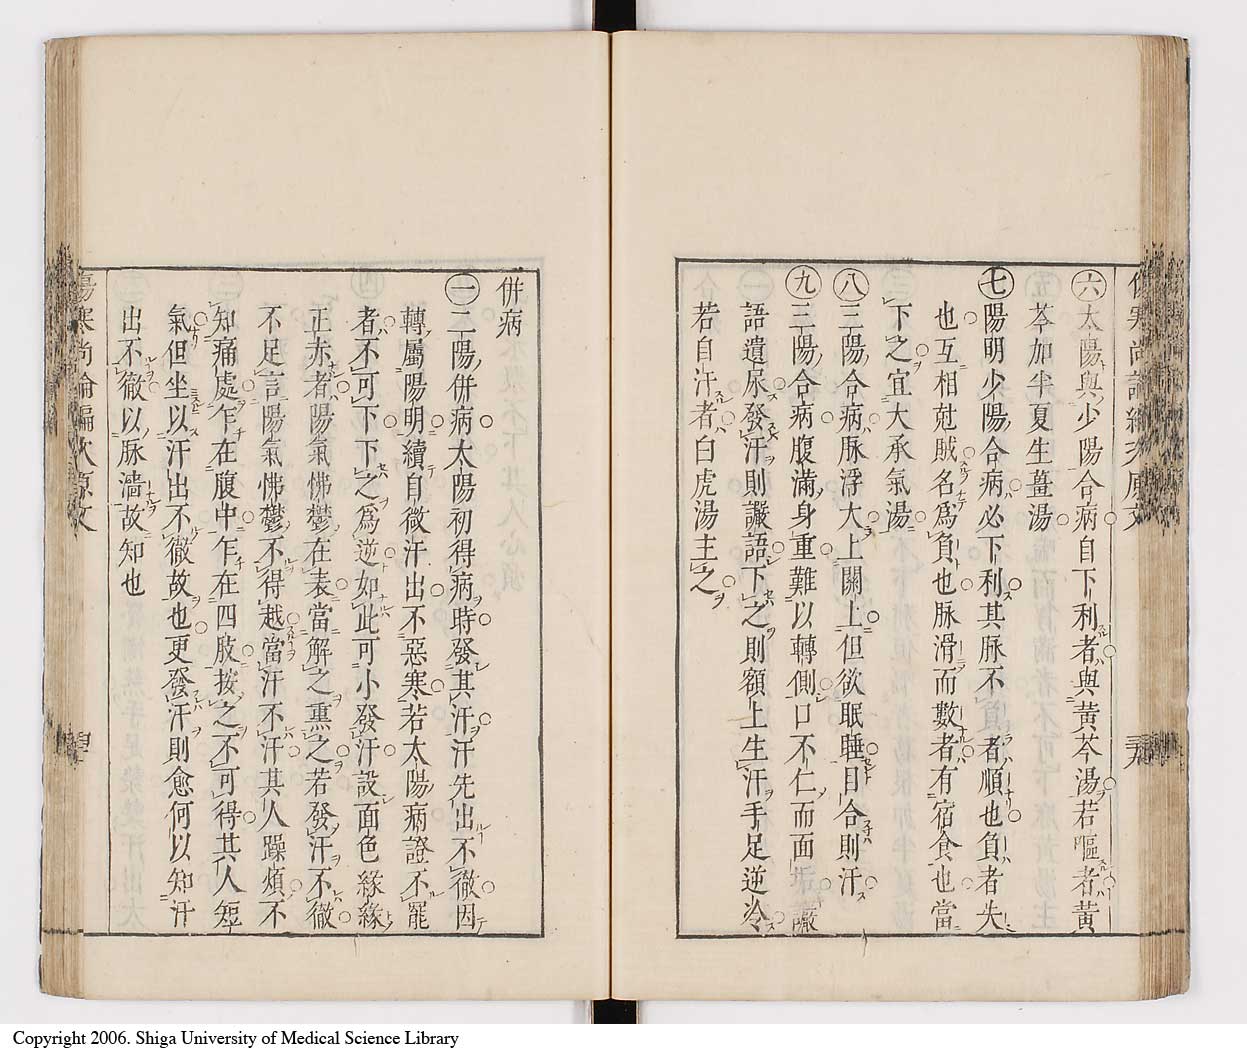 ㊅太陽與少陽合病自下利者與黃芩湯若嘔者黃
芩加半夏生薑湯
㊆陽明少陽合病必下利其脉不負者順也負者失
也互相尅賊名爲負也脉滑而數者有宿食也當
下之宜大承氣湯
㊇三陽合病脉浮大上關上但欲眠睡目合則汗
㊈三陽合病腹滿身重難以轉側口不仁而面垢讝
語遺尿發汗則讝語下之則額上生汗手足逆冷
若自汗者白虎湯主之
併病
㊀二陽併病太陽初得病時發其汗汗先出不徹因
轉屬陽明續自微汗出不惡寒若太陽病證不罷
者不可下下之爲逆如此可小發汗設面色緣緣
正赤者陽氣怫鬱在表當解之熏之若發汗不徹
不足言陽氣怫鬱不得越當汗不汗其人躁煩不
知痛處乍在腹中乍在四肢按之不可得其人短
氣但坐以汗出不徹故也更發汗則愈何以知汗
出不徹以脉濇故知也
傷寒尚論編次原文
Copyright 2006. Shiga University of Medical Science Library